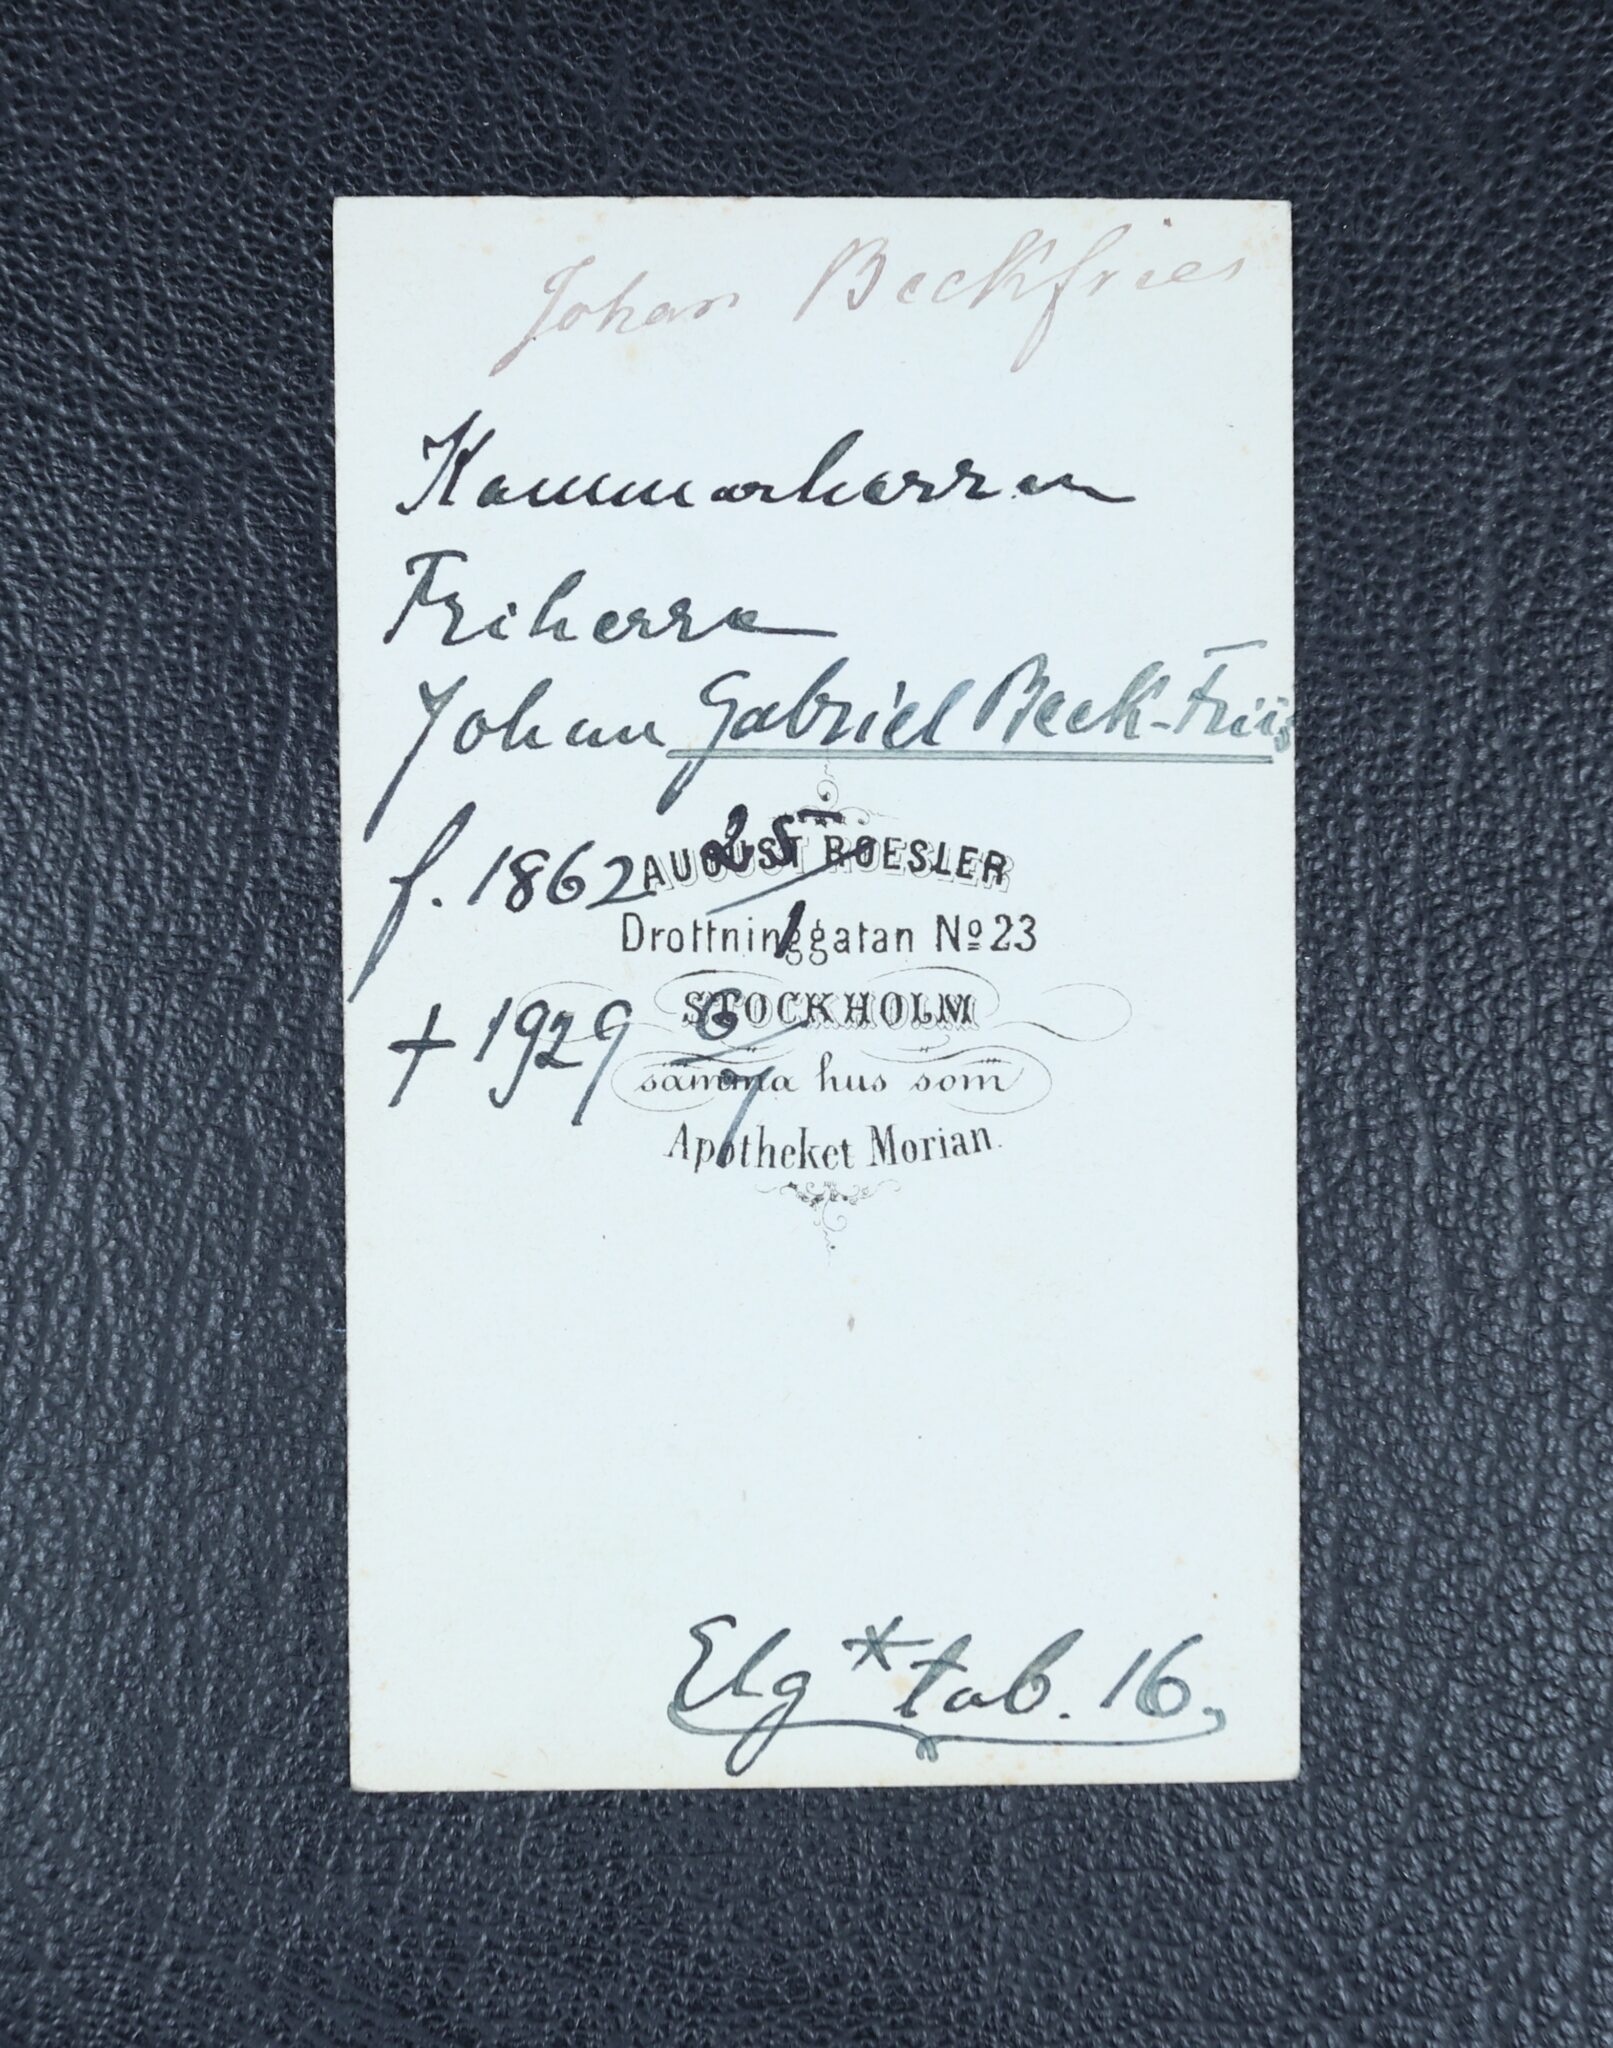 Johan Beckfries
Kammarherren
Friherre
Johan Gabriel Beck-Friis
f. 1862 25/1
AUGUST ROESLER
Drottninggatan No 23
STOCKHOLM
† 1929 6/7
samma hus som
Apotheket Morian.
Elg * tab. 16.